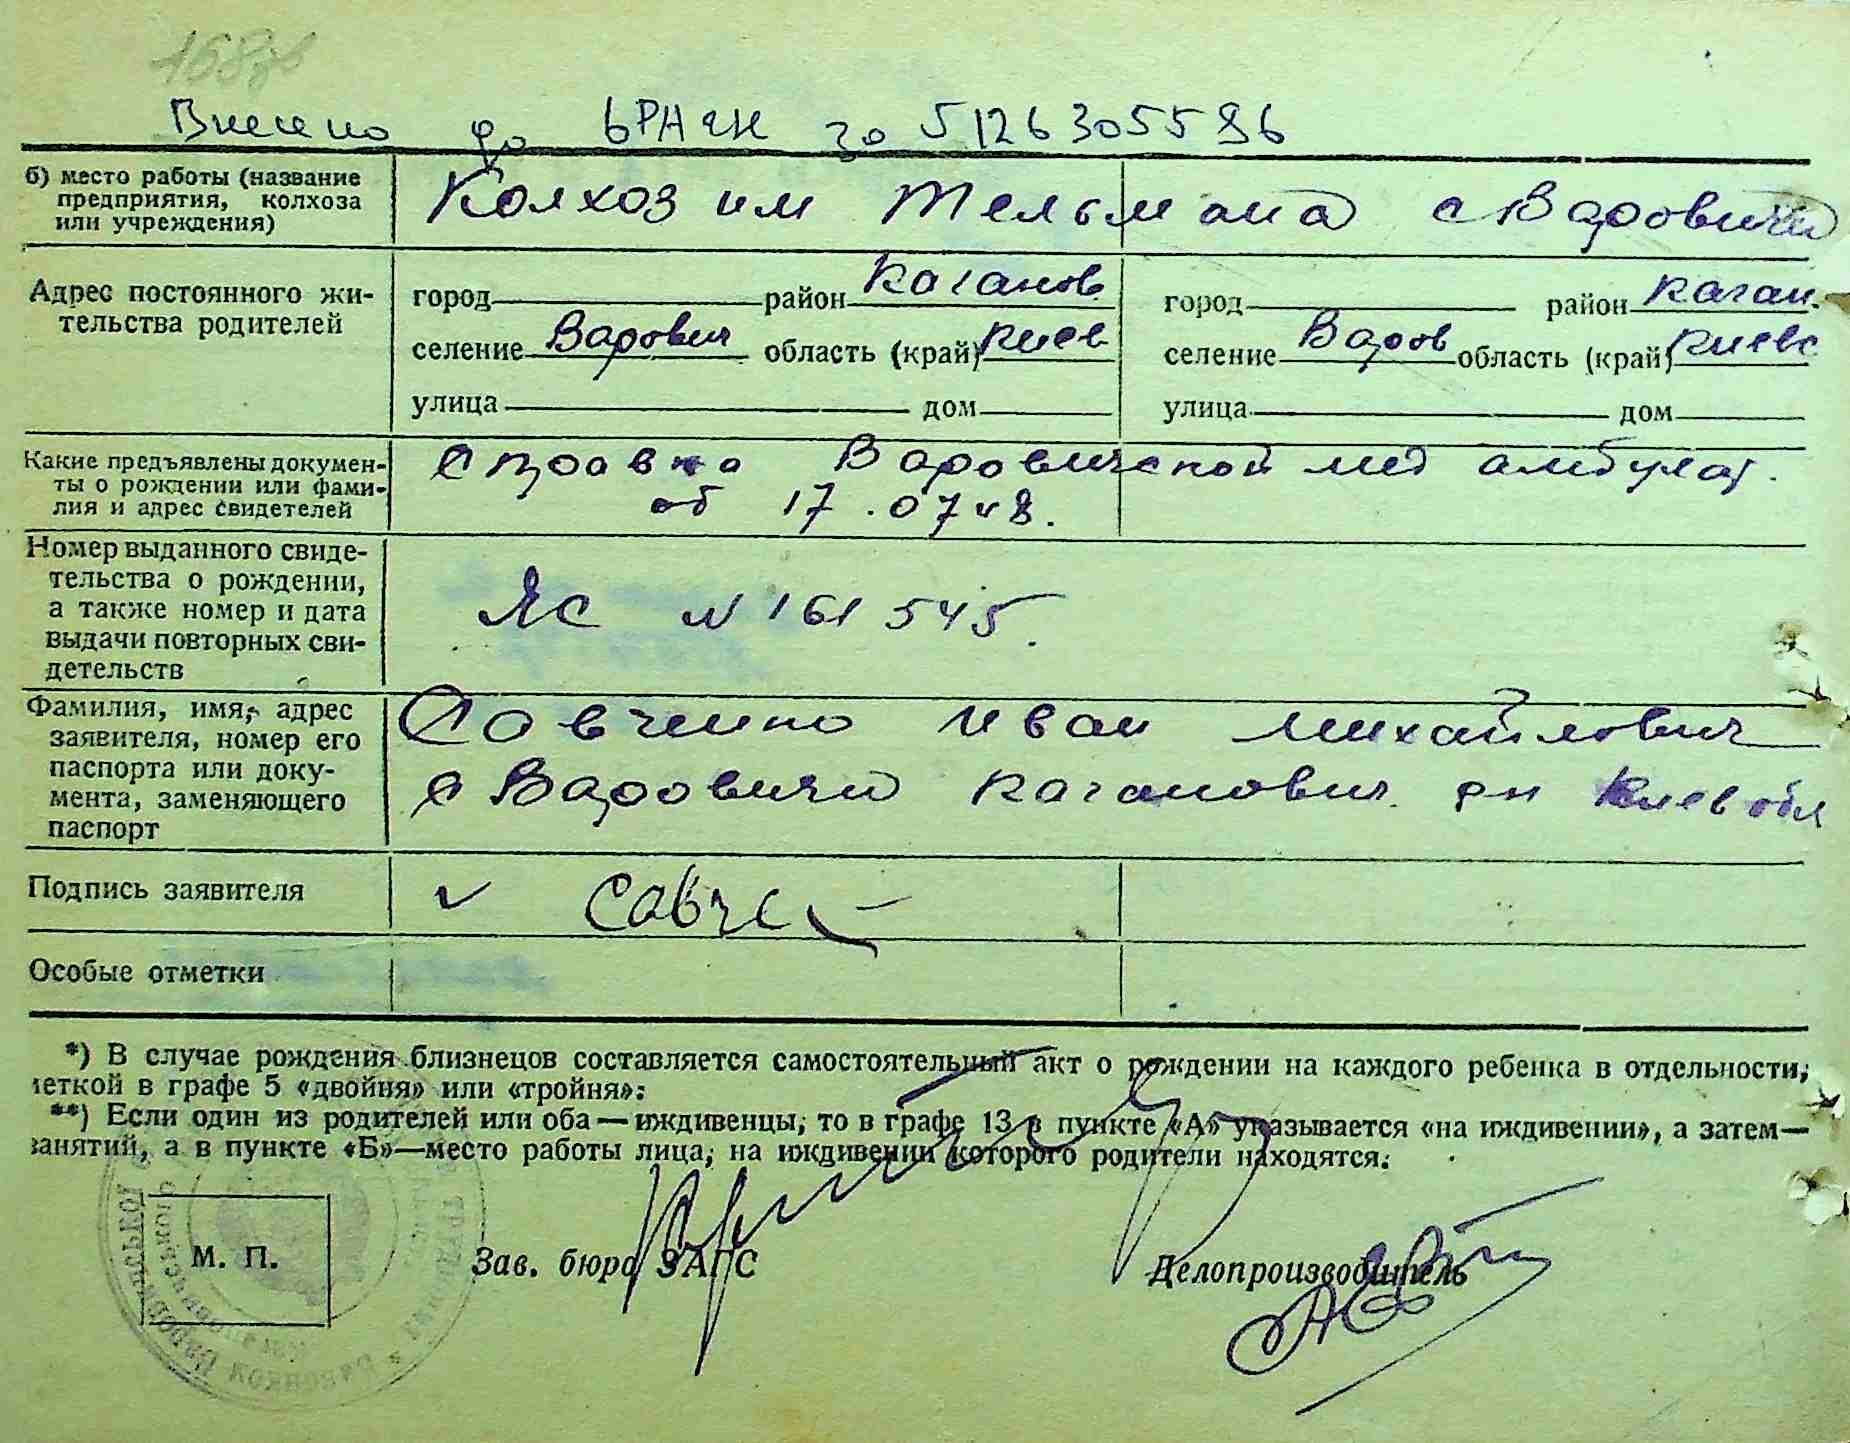 168
Внесено до ЬРАЧН за 51263055
б) место работы (название предприятия, колхоза или учреждения) Колхоз им Тельмана с Варовичи
Адрес постоянного жи-
тельства родителей
город район Каганов. город район Каган.
селение Варович область (край) Киев селение Варов область (край) Киевс
улица дом улица дом
Какие предъявлены докумен-
ты о рождении или фами-
лия и адрес свидетелей
Справка Варовичской мед амбулат.
об 17.07 48.
Номер выданного свиде-
тельства о рождении,
а также номер и дата
выдачи повторных сви-
детельств
ЯС N 161545.
Фамилия, имя, адрес
заявителя, номер его
паспорта или доку-
мента, заменяющего
паспорт
Савченко Иван Михайлович
с Варовичи Каганович. рн Киев обл
Подпись заявителя Савче
Особые отметки
*) В случае рождения близнецов составляется самостоятельный акт о рождении на каждого ребенка в отдельности,
меткой в графе 5 «двойня» или «тройня»:
**) Если один из родителей или оба—иждивенцы, то в графе 13 в пункте «А» указывается «на иждивении», а затем—
занятий, а в пункте «Б»—место работы лица, на иждивении которого родители находятся.
М. П. Зав. бюро ЗАГС Делопроизводитель